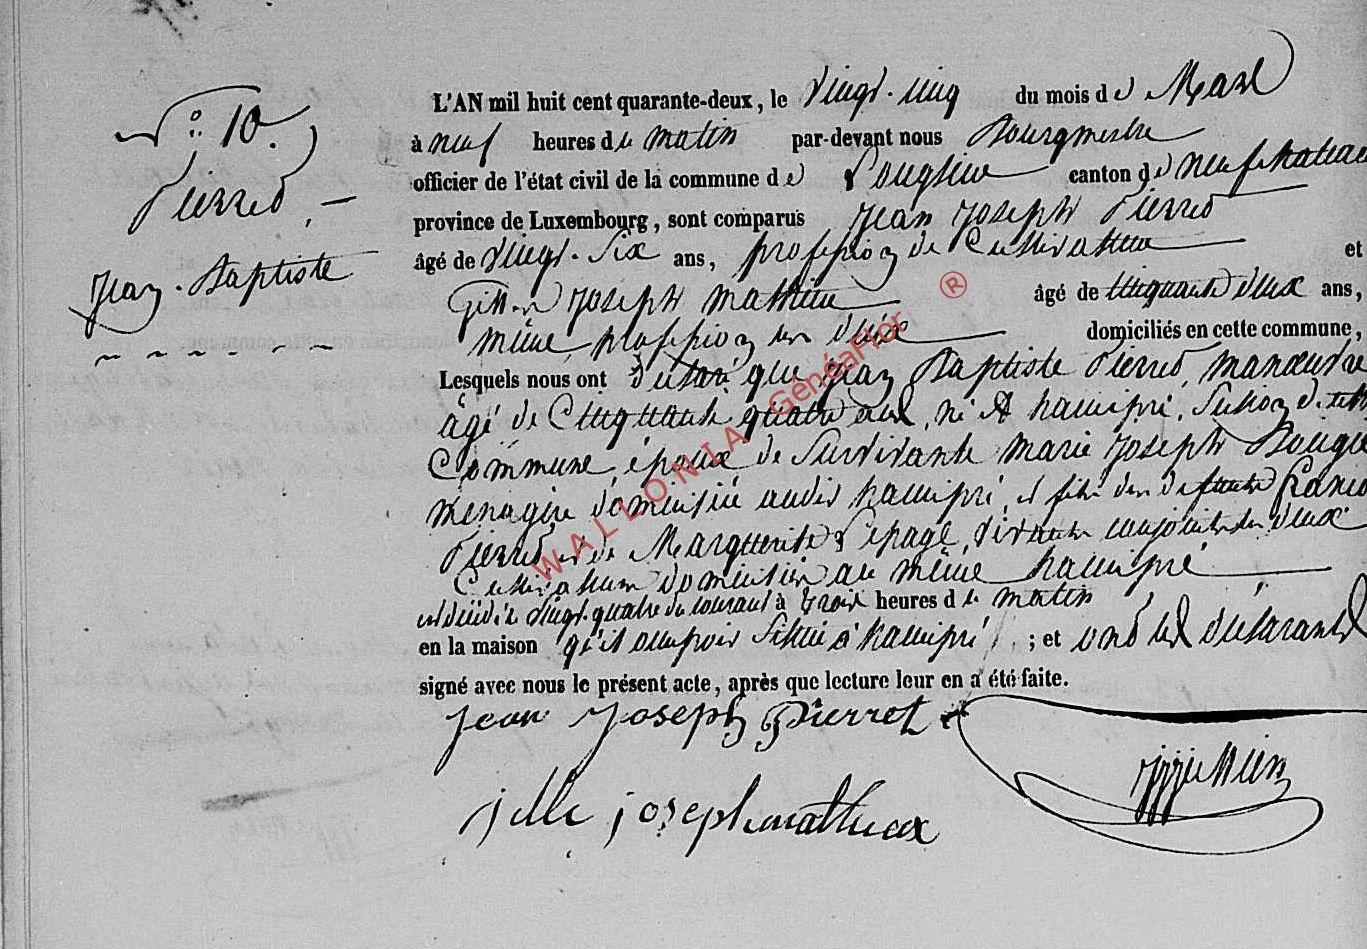 N° 10
Pierret
Jean-Baptiste
L'AN mil huit cent quarante-deux, le vingt-cinq du mois de Mars
à neuf heures du matin par-devant nous Bourgmestre
officier de l'état civil de la commune de Longlier canton de Neufchateau
province de Luxembourg, sont comparus Jean Joseph Pierret
âgé de vingt-six ans, profession de Cultivateur et
Joseph Mathieu âgé de cinquante deux ans,
même profession domiciliés en cette commune,
Lesquels nous ont déclaré que Jean Baptiste Pierret, manœuvre
âgé de Cinquante quatre ans, né à hamipré, Section de cette
Commune, époux de Survivante Marie Joseph
ménagère domiciliée audit hamipré, et fils des defunts
Pierret et de Marguerite Lepage, vivants conjoints tous deux
Cultivateurs domiciliés au même hamipré
est décédé le vingt-quatre du courant à trois heures du matin
en la maison qu'il occupoit Située à hamipré ; et ont les déclarants
signé avec nous le présent acte, après que lecture leur en a été faite.
Jean Joseph Pierret
jille joseph mathieux
WALLONIA GénéaFlor ®